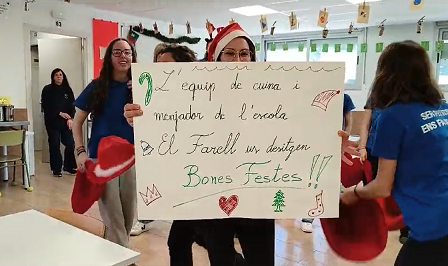 L'equip de cuina i
menjador de l'escola
El Farell us desitgen
Bones Festes!!